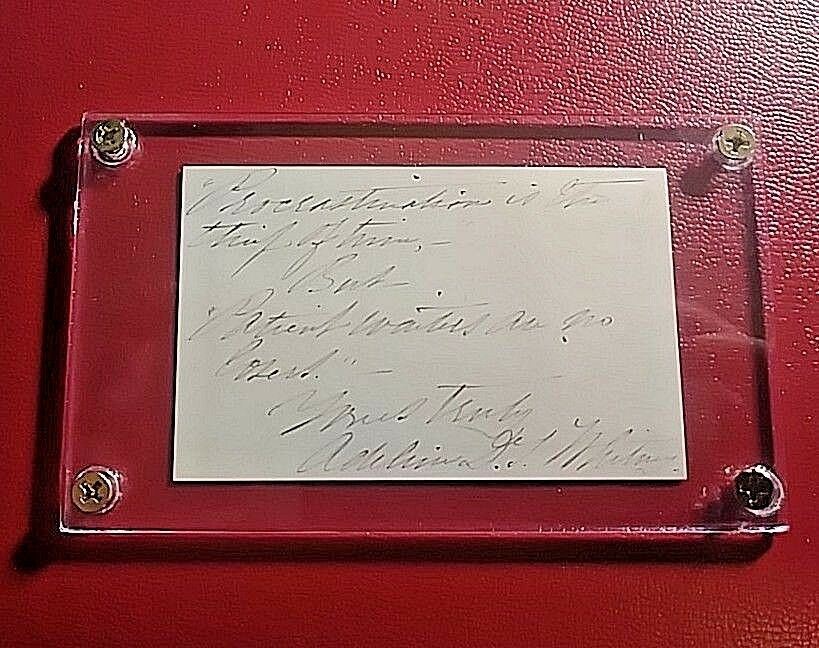 "Procrastination is the
thief of time, —
But
"Patient waiters are no
losers." —
Yours truly
Adeline D. T. Whitney.